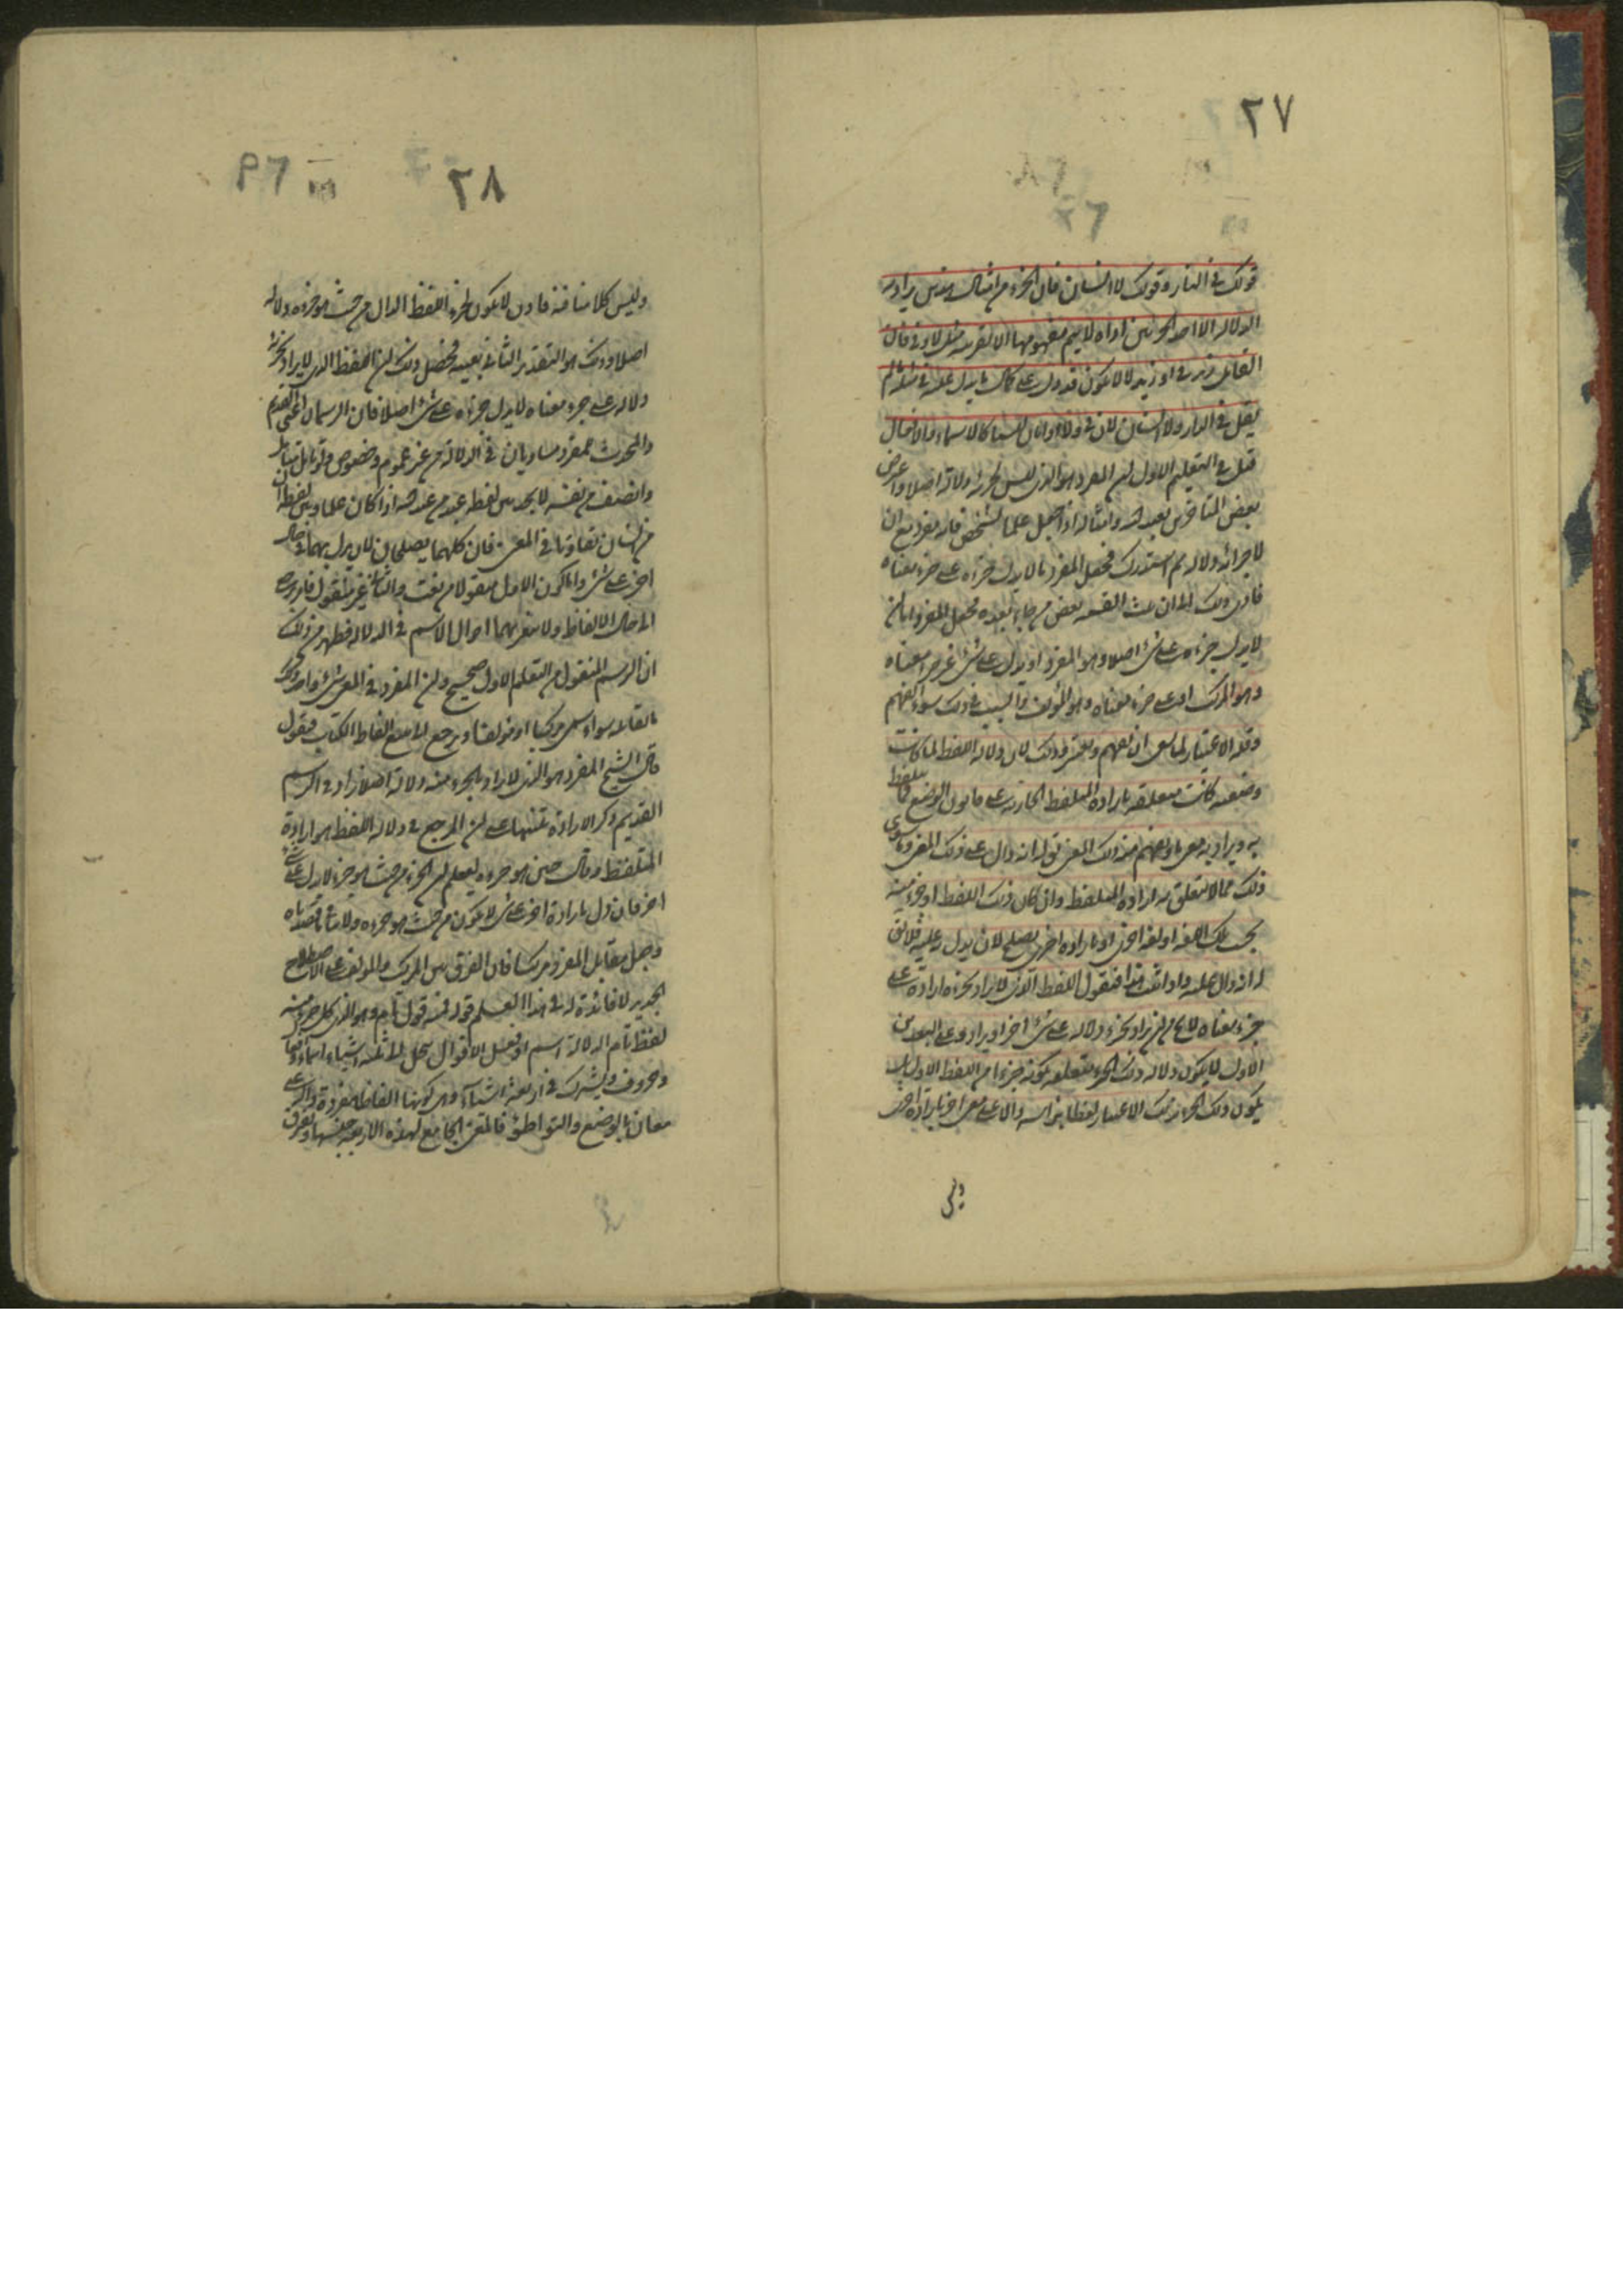 ٢٧
قولك في الدار وقولك لا انسان فان الجزء من امثال هذين يراد به
الدلالة الا ان احد الجزئين اداة لا يتم مفهومها الا بقرينة مثل لا وفي فان
القائل زيد في او زيد لا لا يكون قد دل على كمال ما يدل عليه في مثله ما لم
يقل في الدار ولا انسان لان في ولا اداتان ليستا كالاسماء والافعال
قيل في التعليم الاول ان المفرد هو الذي ليس لجزئه دلالة اصلا واعترض
بعض المتاخرين بعبد الله وامثاله اذا جعل علما لشخص فانه مفرد مع ان
لاجزائه دلالة ثم استدرك فجعل المفرد ما لا يدل جزءه على جزء معناه
فادى ذلك الى ان ثلث القسمة بعض من جاء بعده فجعل اللفظ اما ان
لا يدل جزءه على شئ اصلا وهو المفرد او يدل على شئ غير جزء معناه
وهو المركب او على جزء معناه وهو المؤلف والسبب في ذلك سوء الفهم
وقلة الاعتبار لما ينبغي ان يفهم ويعتبر وذلك لان دلالة اللفظ لما كانت
وضعية كانت متعلقة بارادة المتلفظ الجارية على قانون الوضع فما يتلفظ
به ويراد به معنى ما ويفهم عنه ذلك المعنى يقال له انه دال على ذلك المعنى وما سوى
ذلك مما لا يتعلق به ارادة المتلفظ وان كان ذلك اللفظ او جزء منه
بحسب تلك اللغة او لغة اخرى او بارادة اخرى يصلح لان يدل به عليه فلا يقال
له انه دال عليه واذا ثبت هذا فنقول اللفظ الذي لا يراد بجزءه دلالة على
جزء معناه لا يخلو من ان يراد بجزءه دلالة على شئ اخر او لا يراد وعلى التقدير
الاول لا يكون دلالة ذلك الجزء متعلقة بكونه جزءا من اللفظ الاول بل
يكون ذلك الجزء بذلك الاعتبار لفظا براسه دالا على معنى اخر بارادة اخرى
وليس
٢٨
وليس كلامنا فيه فاذن لا يكون لجزء اللفظ الدال من حيث هو جزءه دلالة
اصلا وذلك هو التقدير الثاني بعينه فحصل من ذلك ان اللفظ الذي لا يراد بجزئه
دلالة على جزء معناه لا يدل جزءه على شئ اصلا فاذن الرسمان اعني القديم
والمحدث للمفرد متساويان في الدلالة من غير عموم وخصوص ولو تامل متامل
وانصف من نفسه لا يجد بين لفظ عبد من عبد الله اذا كان علما وبين لفظة ان
من انسان تفاوتا في المعنى فان كليهما يصلحان لان يدل بهما في حال
اخرى على شئ واما كون الاول منقولا من نعت والثاني غير منقول فامر يرجع
الى حال الالفاظ ولا يتغير بهما احوال الاسم في الدلالة فظهر من ذلك
ان الرسم المنقول من التعليم الاول صحيح وان المفرد في المعنى شئ واحد وكذلك
ما يقابله سواء سمي مركبا او مؤلفا ونرجع الى تتبع الفاظ الكتاب فنقول
قال الشيخ المفرد هو الذي لا يراد بالجزء منه دلالة اصلا فزاد في الرسم
القديم ذكر الارادة تنبيها على ان المرجع في دلالة اللفظ هو ارادة
المتلفظ وقال حين هو جزءه ليعلم ان الجزء من حيث هو جزء لا يدل على شئ
اخر فان دل بارادة اخرى على شئ لا يكون من حيث هو جزءه ولا ينافي قصدناه
وجعل مقابل المفرد مركبا فان الفرق بين المركب والمؤلف على الاصطلاح
الجديد لا فائدة له في هذا العلم قوله فمنه قول تام وهو الذي كل جزء منه
لفظ تام الدلالة اسم او فعل الاقوال تنحل الى ثلثة اشياء اسماء وافعال
وحروف ويشترك في اربعة اشياء وهي كونها الفاظا مفردة دالة على
معان بالوضع والتواطؤ فالمعنى الجامع لهذه الاربعة جنسها ويفرق